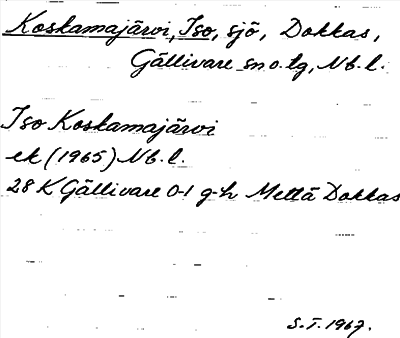 Koskamajärvi, Iso, sjö, Dokkas,
Gällivare sn o. lg, Nb. l.
Iso Koskamajärvi
ek (1965) Nb. l.
28 K Gällivare 0-1 g-h Mettä Dokkas
S.T. 1967.